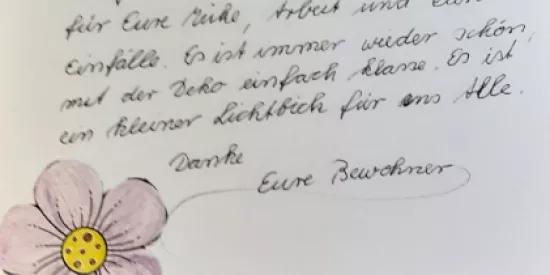 für Eure Mühe, Arbeit und Eure
Einfälle. Es ist immer wieder schön,
mit der Deko einfach klasse. Es ist
ein kleiner Lichtblick für uns Alle.
Danke
Eure Bewohner